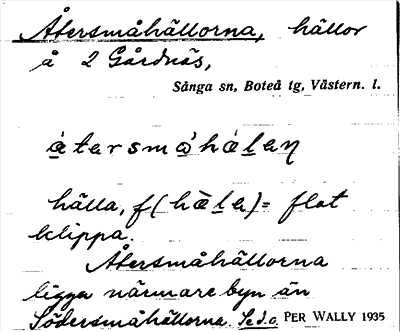 Återsmåhällorna, hällor
å 2 Gårdnäs,
Sånga sn, Boteå tg, Västern. l.
átersmå̀hálaη
hälla, f (hàla) = flat
klippa.
Återsmåhällorna
ligga närmare byn än
Södersmåhällorna. Se d.o. PER WALLY 1935